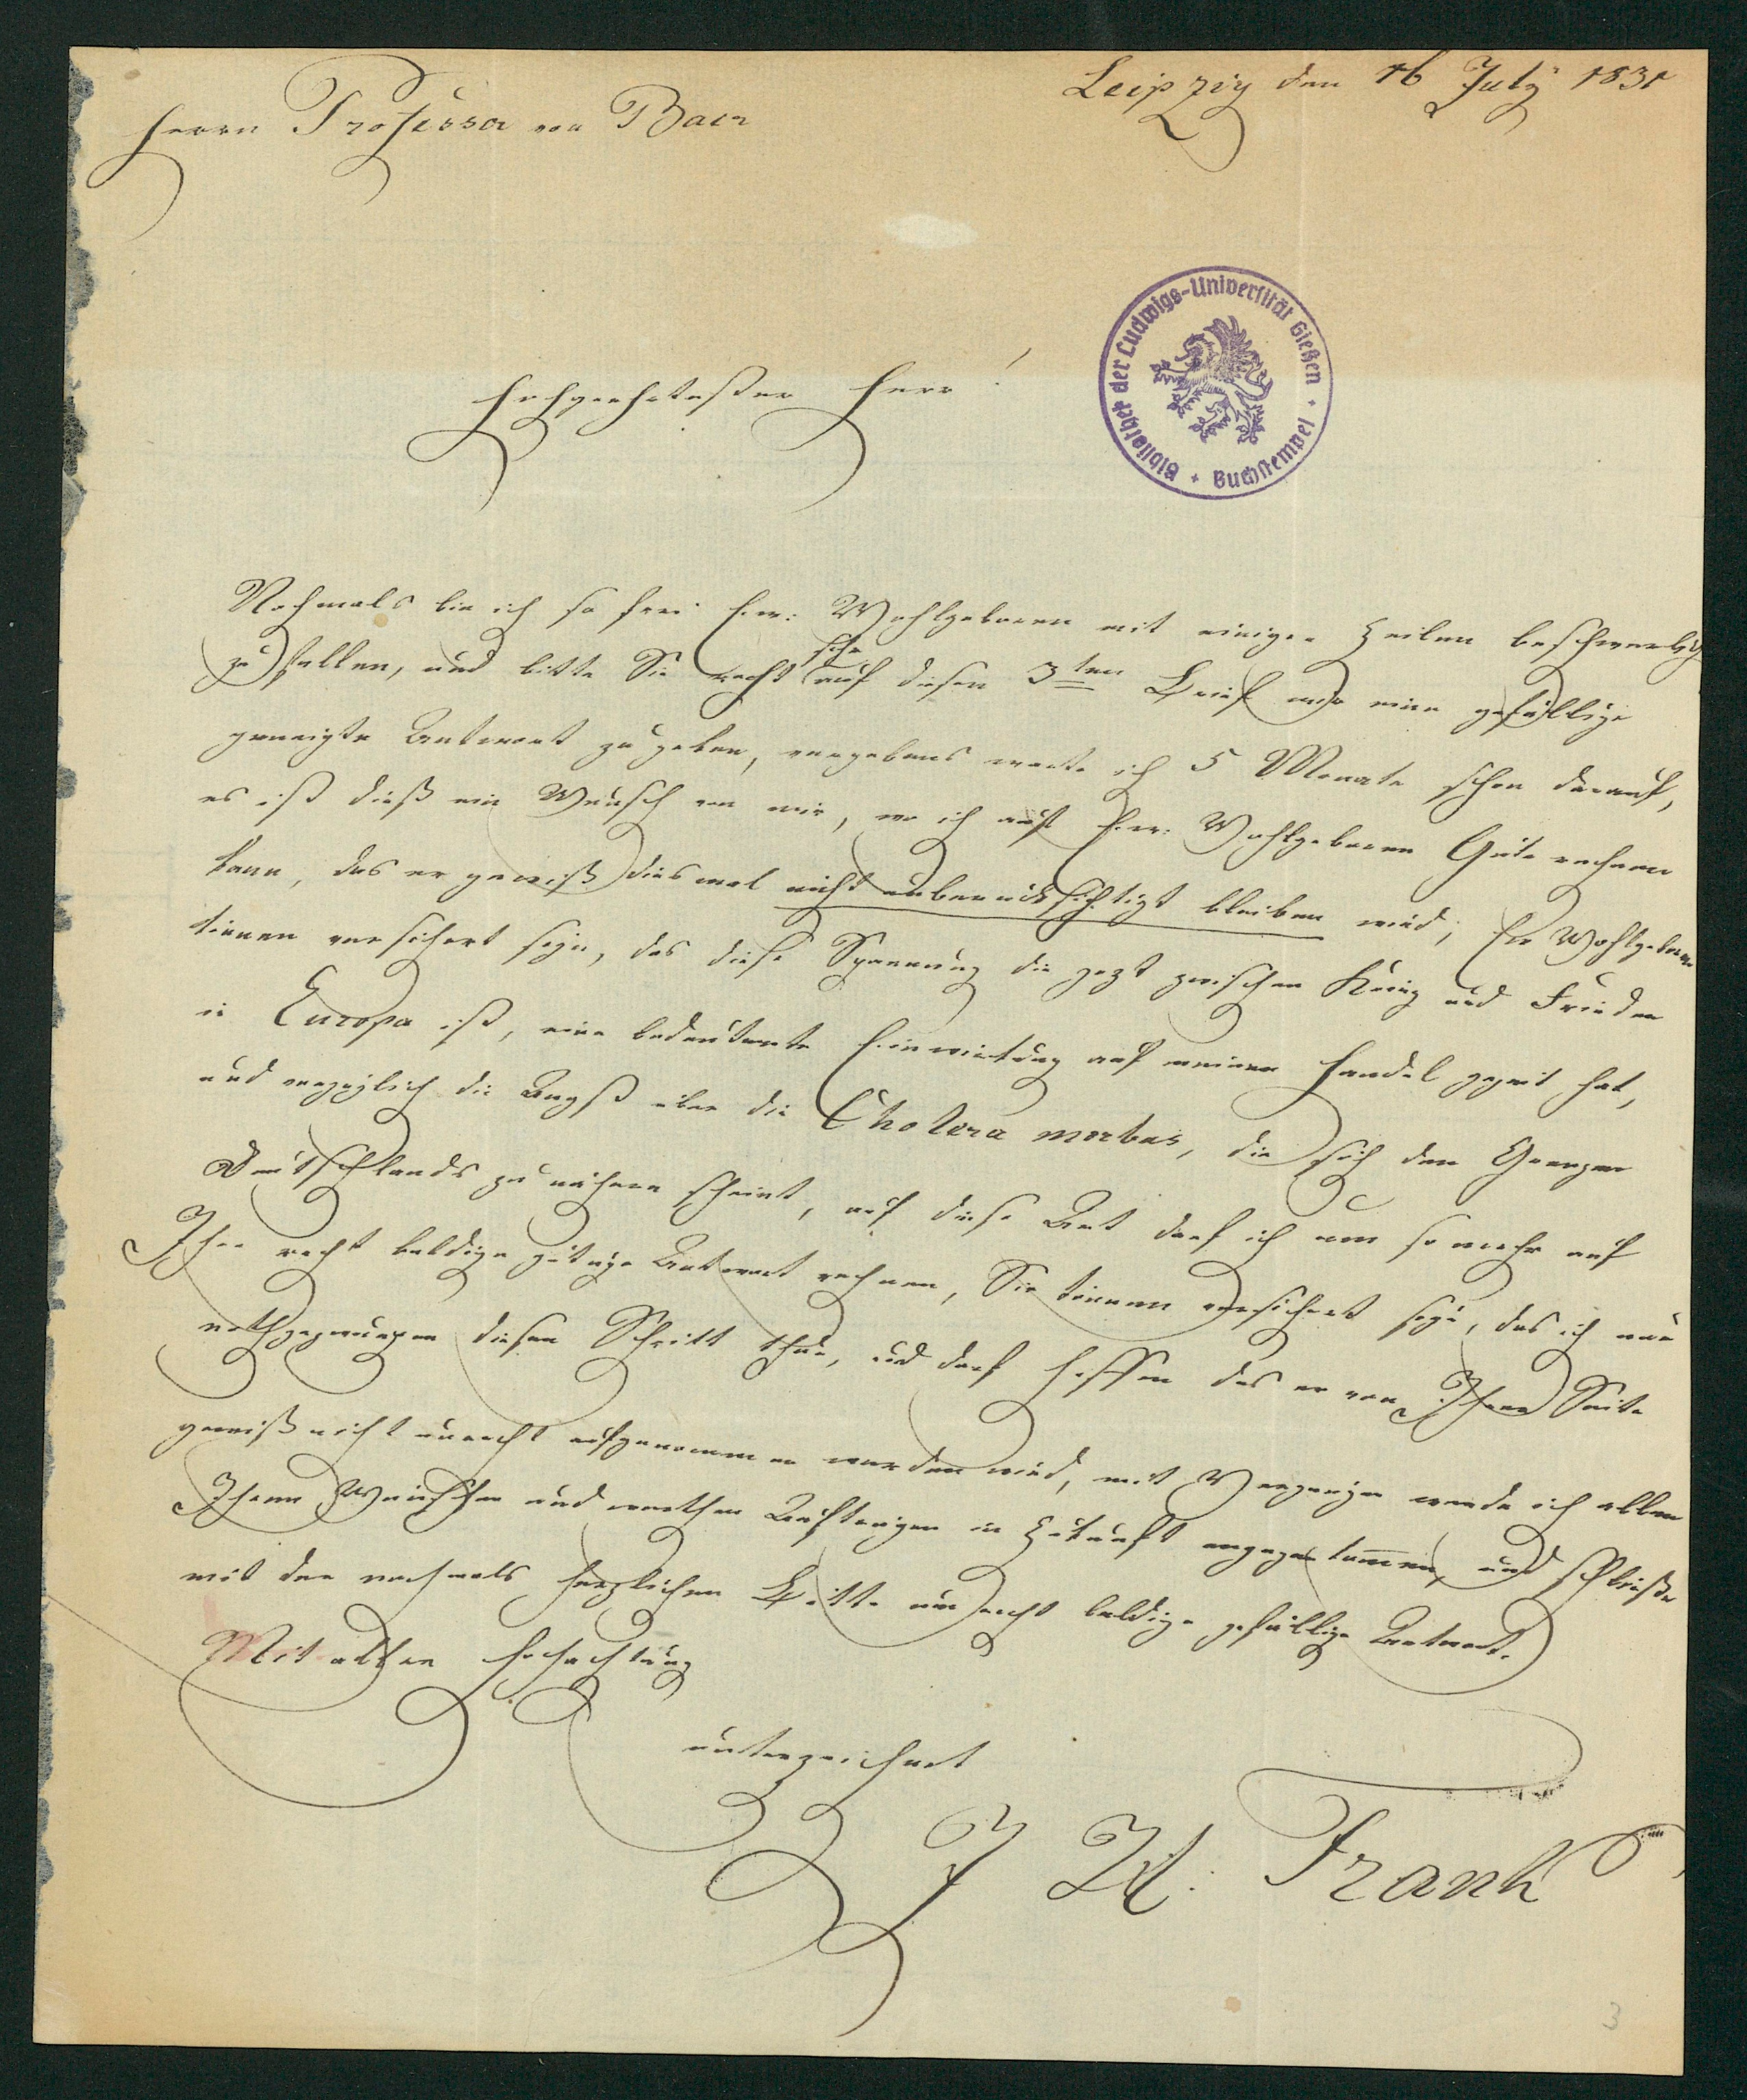 Leipzig den 16 July 1831
Herrn Professor von Baer
Bibliothek der Ludwigs-Universität Gießen + Buchstempel +
Hochgeehrtester Herr!
Nochmals bin ich so frei Ew: Wohlgeboren mit einigen Zeilen beschwerlich
zu fallen, und bitte Sie recht sehr auf diesen 3ten Brief mir eine gefällige
geneigte Antwort zu geben, vergebens warte ich 5 Monate schon darauf,
es ist dieß ein Wunsch von mir, wo ich auf Ew: Wohlgeboren Güte rechnen
kann, das er gewiß diesmal nicht unberücksichtigt bleiben wird, Ew Wohlgeboren
können versichert seyn, das diese Spannung die jezt zwischen Krieg und Frieden
in Europa ist, eine bedeutente Einwirkung auf meinen Handel gehabt hat,
und vorzüglich die Angst über die Cholera morbus, die sich den Grenzen
Deutschlands zu nähern scheint, auf diese Art darf ich um so mehr auf
Ihre recht baldige gütige Antwort rechnen, Sie können versichert seyn, das ich nur
nothgezwungen diesen Schritt thue, und darf hoffen das er von Ihrer Seite
gewiß nicht unrecht aufgenommen werden wird, mit Vergnügen werde ich allen
Ihren Wünschen und werthen Aufträgen in Zukunft entgegen kommen, und schließe
mit der nochmals herzlichen Bitte um recht baldige gefällige Antwort.
Mit aller Hochachtung
unterzeichnet
J H: Frank
3